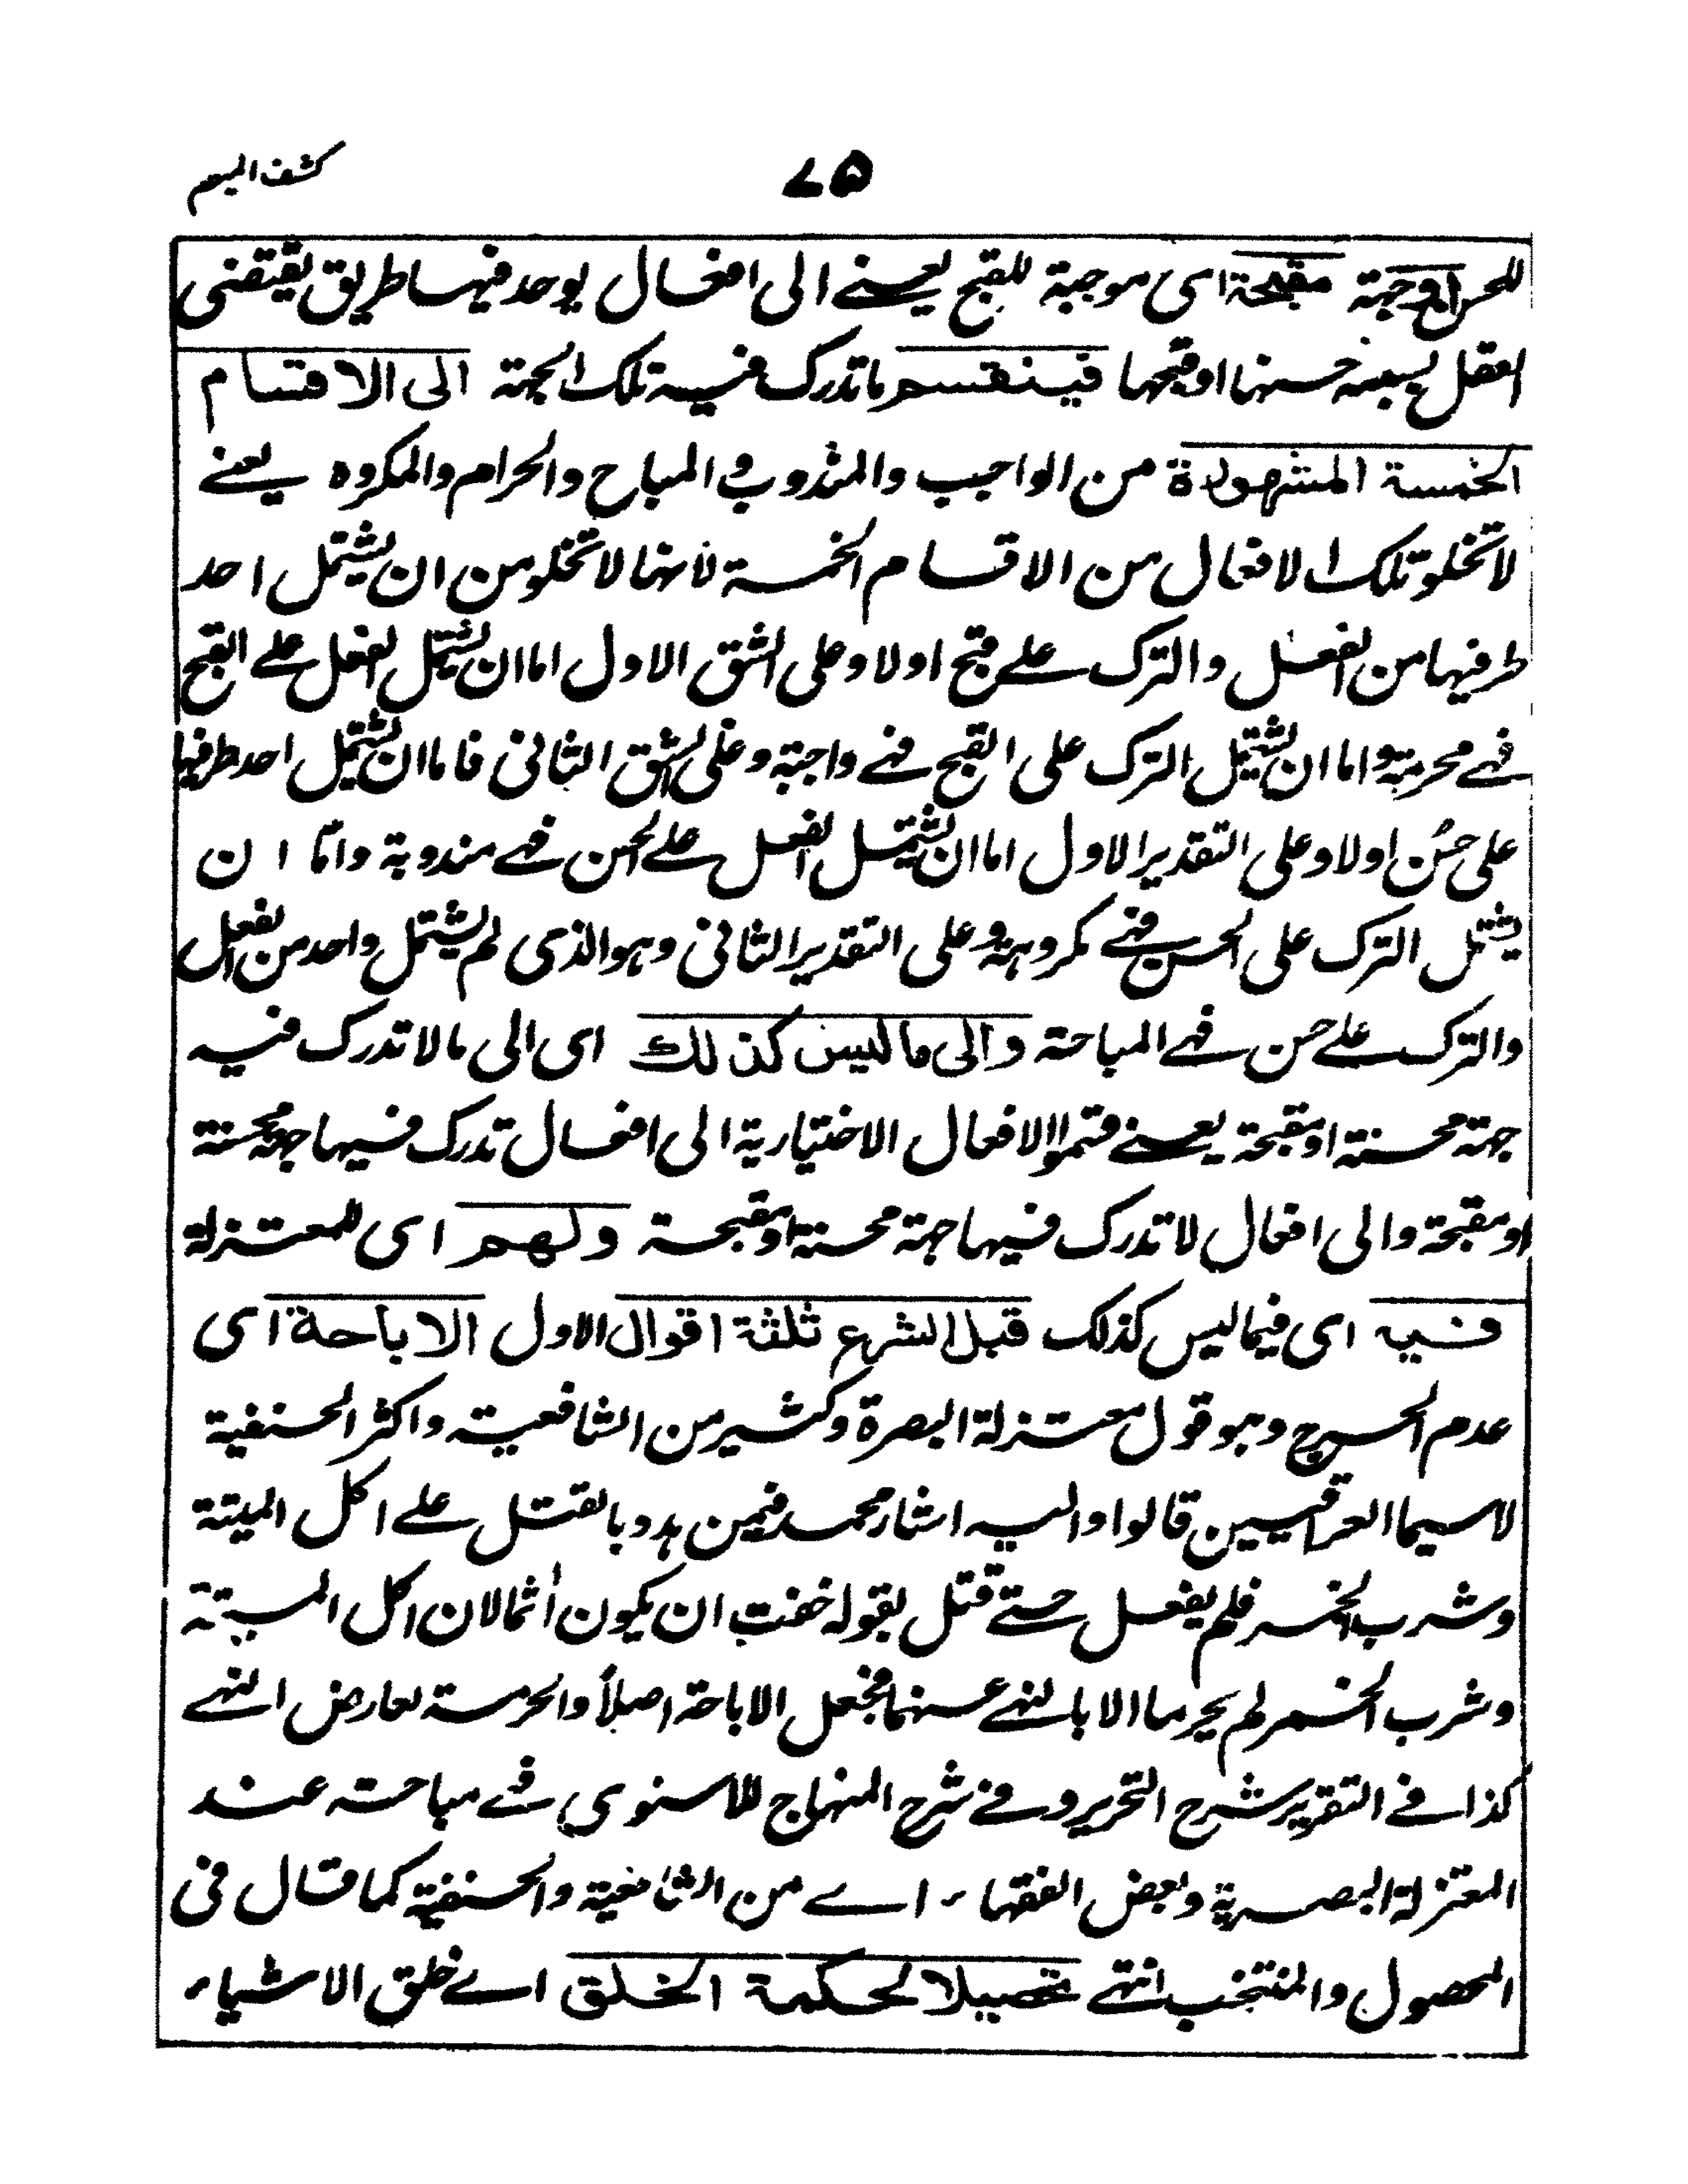 ۷۵
كشف المبهم
للحسن او جهة مقبحة اى موجبة للقبح يعنے الى افعال يوجد فيها طريق يقتضى
العقل بسببه حسنها او قبحها فينقسم ما تدرك فيه تلك الجهة الى الاقسام
الخمسة المشهورة من الواجب والمندوب والمباح والحرام والمكروه يعنے
لا تخلو تلك الافعال من الاقسام الخمسة لانها لا تخلو من ان يشتمل احد
طرفيها من الفعل والترك علے قبح اولا وعلى الشق الاول اما ان يشتمل الفعل علے القبح
فهے محرمة واما ان يشتمل الترك على القبح فهے واجبة وعلى الشق الثانى فاما ان يشتمل احد طرفيها
على حسُن اولا وعلى التقدير الاول اما ان يشتمل الفعل علے الحسن فهے مندوبة وامّا ان
يشتمل الترك على الحسن فهے مكروهة وعلى التقدير الثانى وهو الذى لم يشتمل واحد من الفعل
والترك علے حسن فهے المباحة والى ما ليس كذلك اى الى ما لا تدرك فيه
جهة محسنة او مقبحة يعنے قسموا الافعال الاختيارية الى افعال تدرك فيها جهة محسنة
او مقبحة والى افعال لا تدرك فيها جهة محسنة او مقبحة ولهم اى للمعتزلة
فيه اى فيما ليس كذلك قبل الشرع ثلثة اقوال الاول الاباحة اى
عدم الحرج وهو قول معتزلة البصرة وكثير من الشافعية واكثر الحنفية
لاسيما العراقيين قالوا واليه اشار محمد فيمن هدد بالقتل علے اكل الميتة
وشرب الخمر فلم يفعل حتے قتل بقوله خفت ان يكون اٰثما لان اكل الميتة
وشرب الخمر لم يحرما الا بالنهے عنهما فجعل الاباحة اصلاً والحرمة لعارض النهے
كذا فے التقرير شرح التحرير وفے شرح المنهاج للاسنوى فے مباحة عند
المعتزلة البصرية وبعض الفقهاء اے من الشافعية والحنفية كما قال فى
المحصول والمنتخب انتهے تحصيلا لحكمة الخلق اے خلق الاشياء